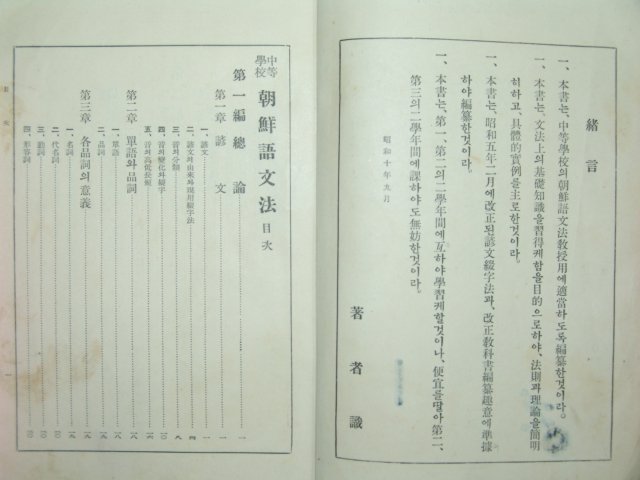 緖言
一、本書는、中等學校의朝鮮語文法敎授用에適當하도록編纂한것이라。
一、本書는、文法上의基礎知識을習得케함을目的으로하야、法則과理論을簡明
히하고、具體的實例를主로한것이라。
一、本書는、昭和五年二月에改正된諺文綴字法과、改正敎科書編纂趣意에準據
하야編纂한것이라。
一、本書는、第一、第二의二學年間에亙하야學習케할것이나、便宜를딸아第二、
第三의二學年間에課하야도無妨한것이라。
昭和十年九月
著者識
中等學校 朝鮮語文法 目次
第一編 總論 一
第一章 諺文 一
一、諺文 一
二、諺文의由來와現用綴字法 四
三、音의分類 八
四、音의變化와綴字 一〇
五、音의高低長短 一六
第二章 單語와品詞 一八
一、單語 一八
二、品詞 一八
第三章 各品詞의意義 一九
一、名詞 一九
二、代名詞 一九
三、動詞 二〇
四、形容詞 二〇
目次